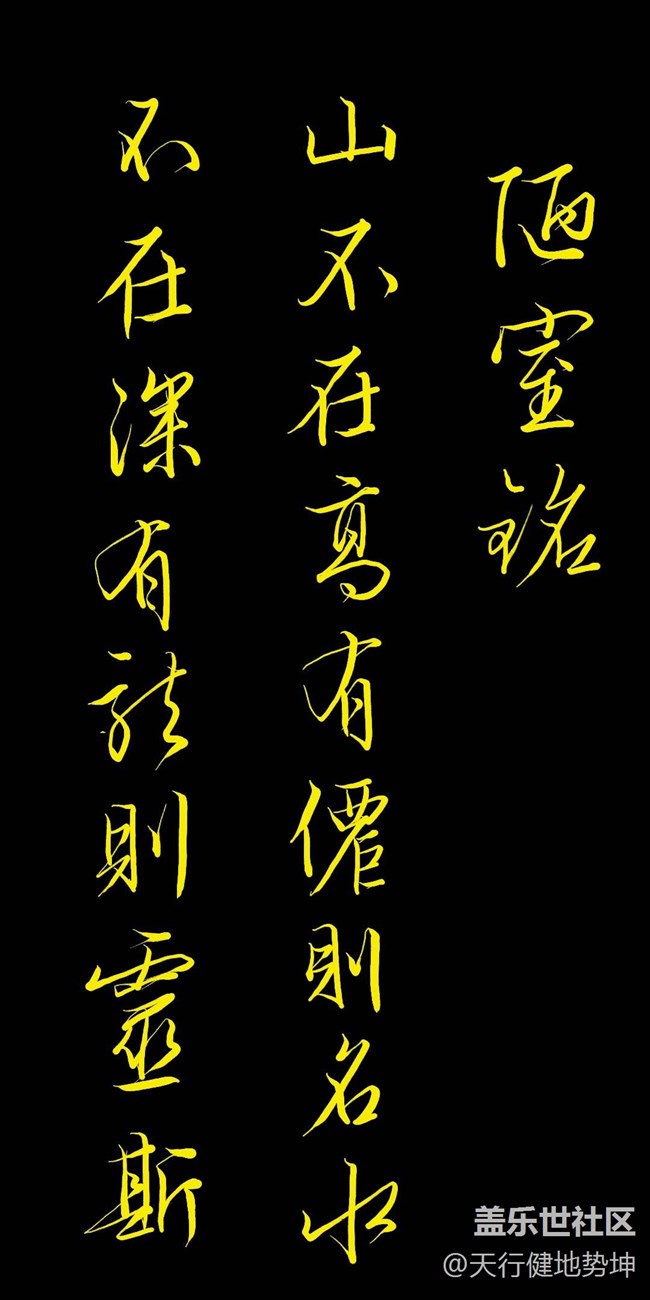 陋室銘
山不在高有僊則名水
不在深有龙則靈斯
盖乐世社区
@天行健地势坤